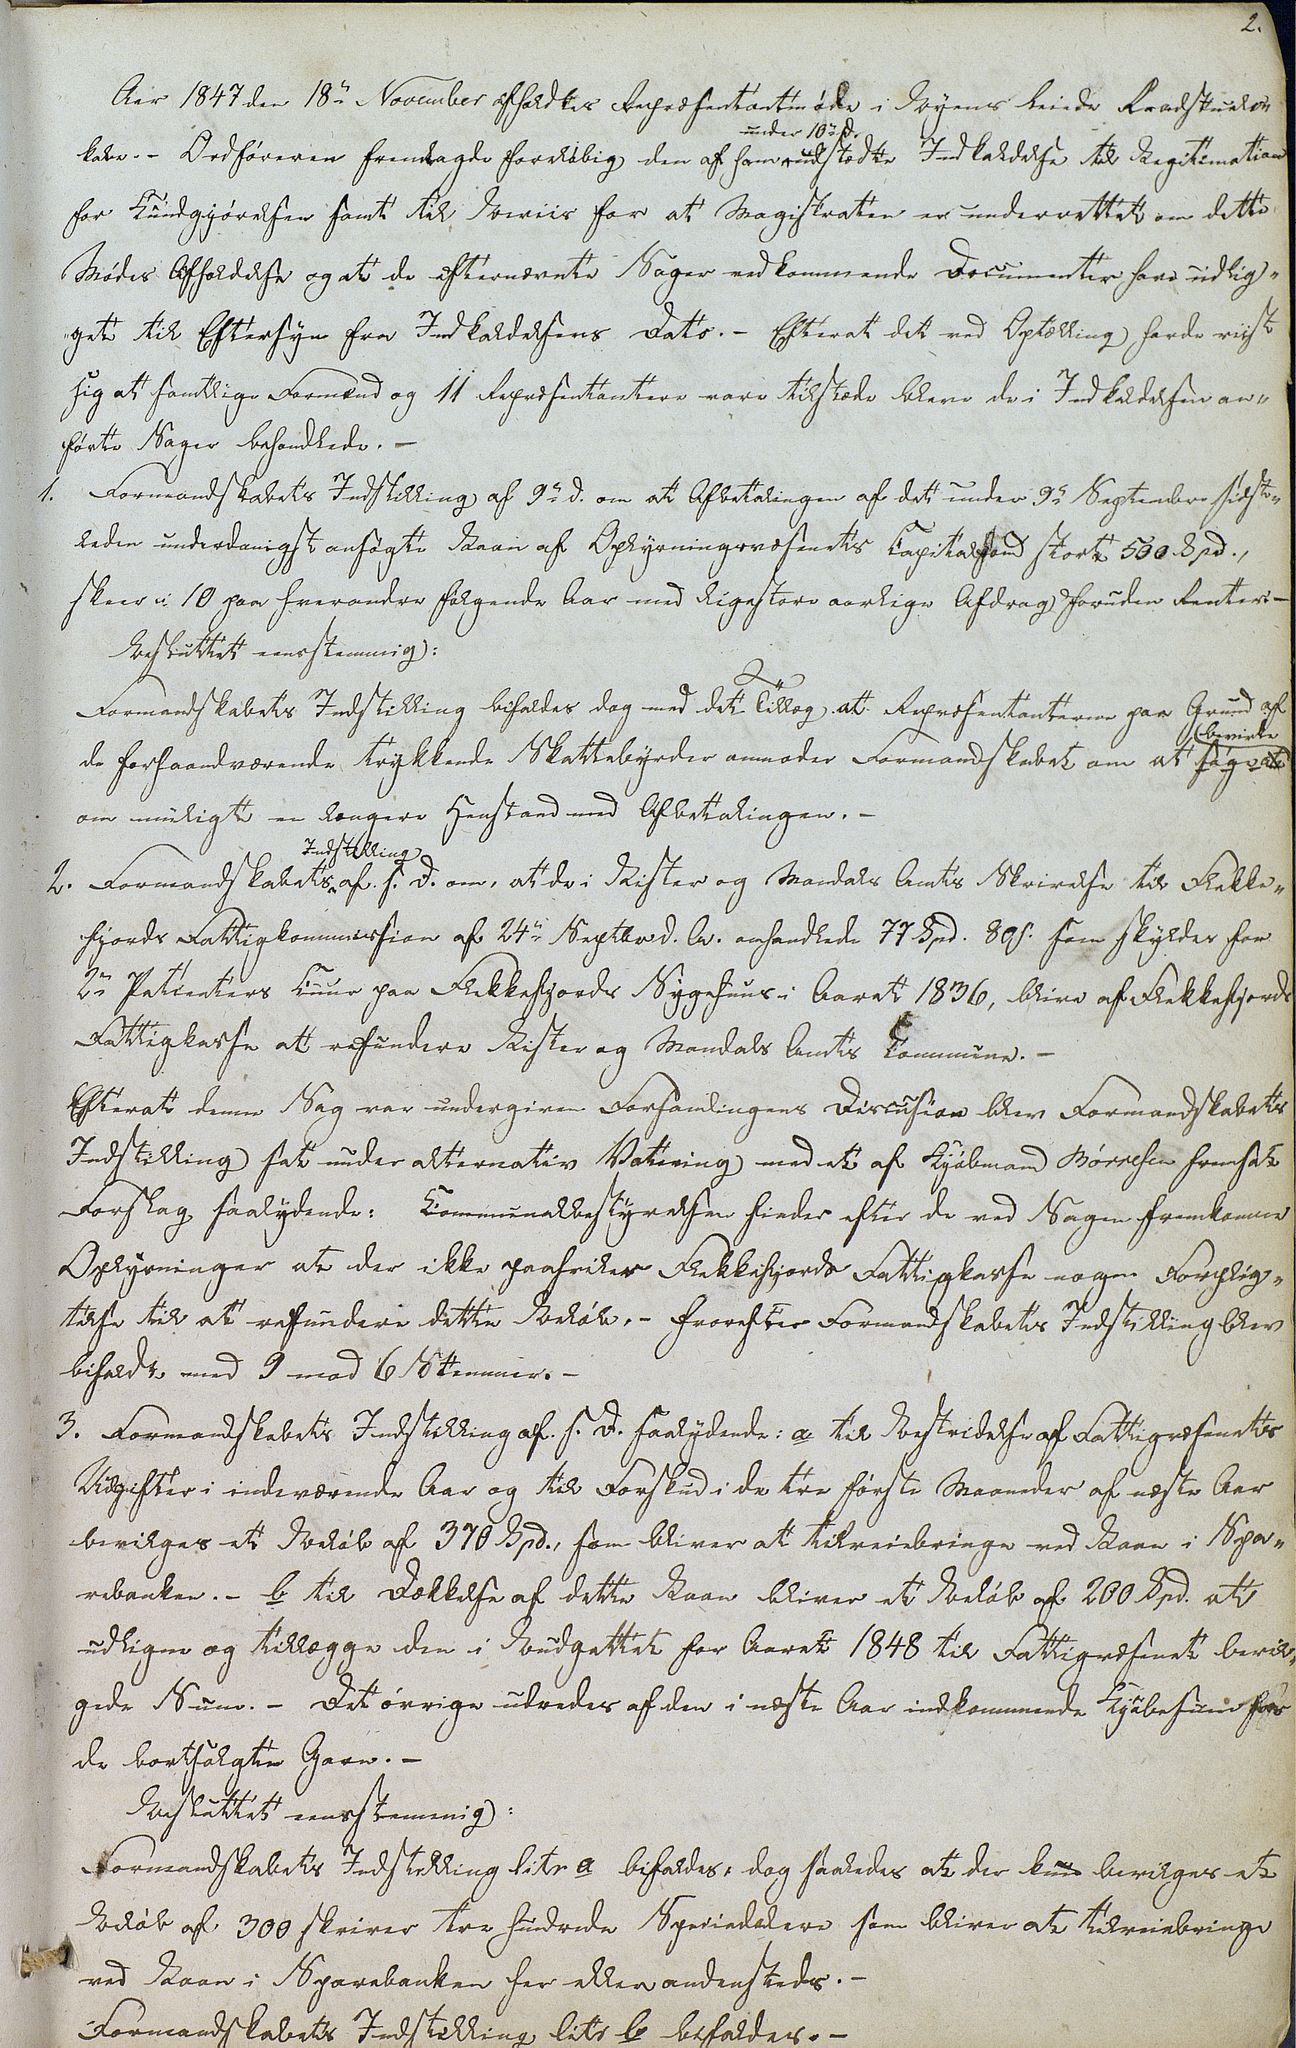 2.
Aar 1847 den 18de November afholdtes Repræsentantmøde i Byens leiede Raadstuelo-
kale. - Ordføreren fremlagde foreløbig den af ham under 10de d. udstædte Indkaldelse til Legitimation
for Kundgjørelsen samt til Beviis for at Magistraten er underrettet om dette
Mødes Afholdelse og at de efternævnte Sager vedkommende Documenter have udlig-
get til Eftersyn fra Indkaldelsens Dato. - Efterat det ved Optælling havde viist
sig at samtlige Formænd og 11 Repræsentantere vare tilstæde bleve de i Indkaldelsen an-
førte Sager behandlede. -
1. Formandskabets Indstilling af 9de d. om at Afbetalingen af det under 9de September sidst-
leden underdanigst ansøgte Laan af Oplysningsvæsenets Capitalfond stort 500 Spd.,
skeer i 10 paa hverandre følgende Aar med ligestore aarlige Afdrag foruden Renter. -
Besluttet eenstemmig:
Formandskabets Indstilling bifaldes dog med det Tillæg at Repræsentanterne paa Grund af
de forhaandværende trykkende Skattebyrder anmoder Formandskabet om at søge bevirke
om muligt en længere Henstand med Afbetalingen. -
2. Formandskabets Indstilling af s. D. om, at de i Lister og Mandals Amts Skrivelse til Flekke-
fjords Fattigkommission af 24de Septbr d. A. omhandlede 77 Spd. 89 s. som skyldes for
2de Patienters Cuur paa Flekkefjords Sygehuus i Aaret 1836, blive af Flekkefjords
Fattigkasse at refundere Lister og Mandals Amts Commune. -
Efterat denne Sag var undergiven Forsamlingens Discusion blev Formandskabets
Indstilling sat under alternativ Votering med et af Kjøbmand Børresen fremsat
Forslag saalydende: Communalbestyrelsen finder efter de ved Sagen fremkomne
Oplysninger at der ikke paahviler Flekkefjords Fattigkasse nogen Forplig-
telse til at refundere dette Beløb. - Hvorefter Formandskabets Indstilling blev
bifaldt med 9 mod 6 Stemmer. -
3. Formandskabets Indstilling af s. D. saalydende: a til Bestridelse af Fattigvæsenets
Udgifter i indeværende Aar og til Forskud i de tre første Maaneder af næste Aar
bevilges et Beløb af 370 Spd., som bliver at tilveiebringe ved Laan i Spa-
rebanken. - b til Dækkelse af dette Laan bliver et Beløb af 200 Spd. at
udligne og tillægge den i Budgettet for Aaret 1848 til Fattigvæsenet bevil-
gede Sum. - Det øvrige udredes af den i næste Aar indkommende Kjøbesum for
de bortsolgte Gaarn. -
Besluttet eenstemmig:
Formandskabets Indstilling litr a bifaldes, dog saaledes at der kun bevilges et
Beløb af 300 skriver tre hundrede Speciedalere som bliver at tilveiebringe
ved Laan i Sparebanken her eller andensteds. -
Formandskabets Indstilling litr b bifaldes. -